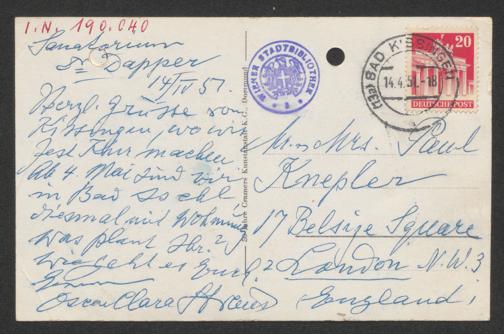 I.N. 190.040
Sanatorium
Dr Dapper
14/IV 51.
Herzl. Grüsse von
Kissingen, wo wir
jetzt Kur machen.
Ab 4. Mai sind wir
in Bad Ischl
diesmal mit Wohnung
was plant Ihr?
wie geht es Euch?
Oscar Clara Straus
WIENER STADTBIBLIOTHEK
20
DEUTSCHE POST
(13a) BAD KISSINGEN
14.4.51.-18
M. u. Mrs. Paul
Knepler
17 Belsize Square
London N.W.3
England